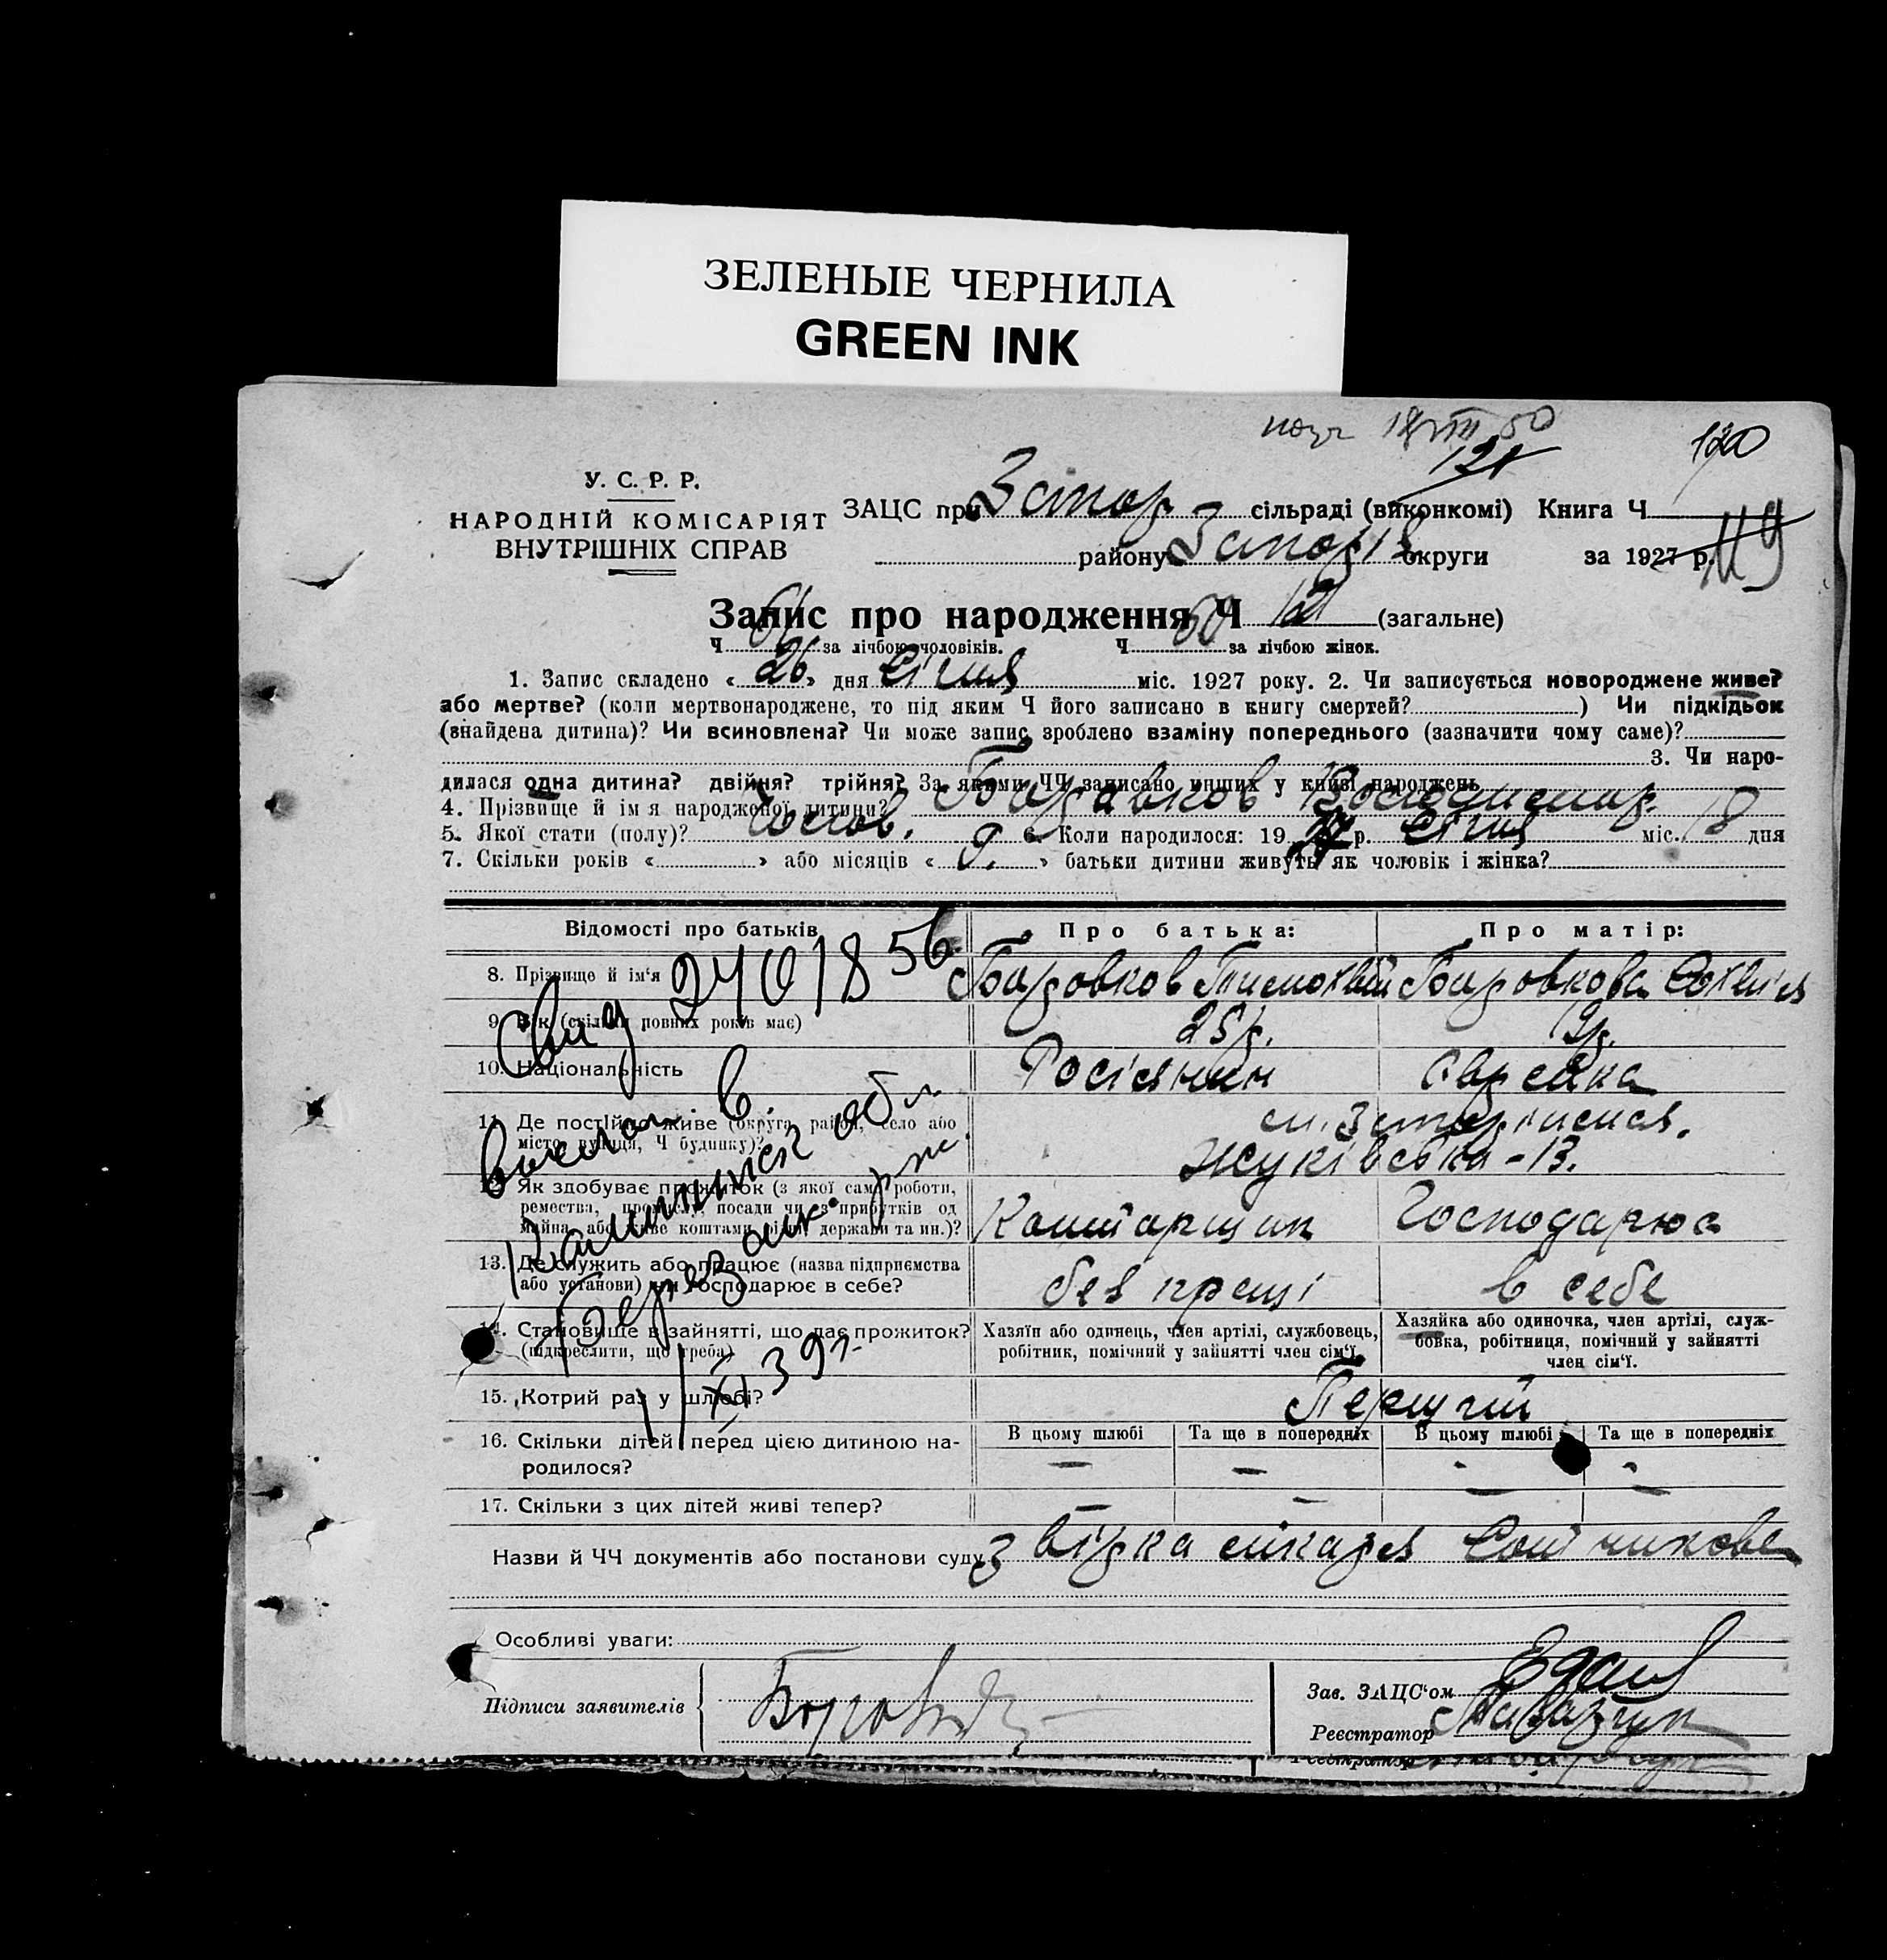 ЗЕЛЕНЫЕ ЧЕРНИЛА
GREEN INK
120
121
У. С. Р. Р.
НАРОДНІЙ КОМІСАРІЯТ
ВНУТРІШНІХ СПРАВ
ЗАЦС при Запор. сільраді (виконкомі) Книга Ч
району Запоріз округи за 1927 р. 119
Запис про народження Ч 121 (загальне)
Ч 61 за лічбою чоловіків. Ч 60 за лічбою жінок.
1. Запис складено « 26 » дня Січня міс. 1927 року. 2. Чи записується новороджене живе?
або мертве? (коли мертвонароджене, то під яким Ч його записано в книгу смертей? ) Чи підкідьок
(знайдена дитина)? Чи всиновлена? Чи може запис зроблено взаміну попереднього (зазначити чому саме)?
3. Чи наро-
дилася одна дитина? двійня? трійня? За якими ЧЧ записано инших у книзі народжень
4. Прізвище й ім'я народженої дитини? Боровков Володимир
5. Якої стати (полу)? Чолов. 6. Коли народилося: 1927 р. Січня міс. 18 дня
7. Скільки років « » або місяців « 9. » батьки дитини живуть як чоловік і жінка?
Відомості про батьків Про батька: Про матір:
8. Прізвище й ім'я Боровков Тимохвій Боровкова Євгенія
9. Вік (скільки повних років має) 25 р. 19 р.
10. Національність Росіянин Єврейка
11. Де постійно живе (округа, район, село або
місто, вулиця, Ч будинку)? м. Запоріжжя.
Жуківська - 13.
12. Як здобуває прожиток (з якої саме роботи,
ремества, промислу, посади чи з прибутків од
майна, або живе коштами рідні, держави та ин.)? Конторщик Господарює
13. Де служить або працює (назва підприємства
або установи) чи господарює в себе? без праці в себе
14. Становище в зайнятті, що дає прожиток?
(підкреслити, що треба)
Хазяїн або одинець, член артілі, службовець,
робітник, помічний у зайнятті член сім'ї.
Хазяйка або одиночка, член артілі, служ-
бовка, робітниця, помічний у зайнятті
член сім'ї.
15. Котрий раз у шлюбі? Перший
16. Скільки дітей перед цією дитиною на-
родилося?
В цьому шлюбі Та ще в попередніх В цьому шлюбі Та ще в попередніх
— — - -
17. Скільки з цих дітей живі тепер? — — — —
Назви й ЧЧ документів або постанови суду Довідка лікаря
Особливі уваги:
Підписи заявителів
Зав. ЗАЦС'ом
Реєстратор
Реєстратор
Свид 240185б
выслан в
обл
11/XI 39 г.